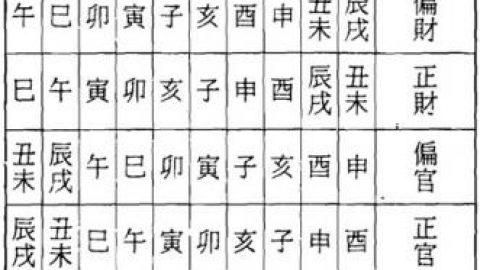 偏財 辰戌 丑未 申 酉 亥 子 寅 卯 巳 午
正財 丑未 辰戌 酉 申 子 亥 卯 寅 午 巳
偏官 申 酉 亥 子 寅 卯 巳 午 辰戌 丑未
正官 酉 申 子 亥 卯 寅 午 巳 丑未 辰戌